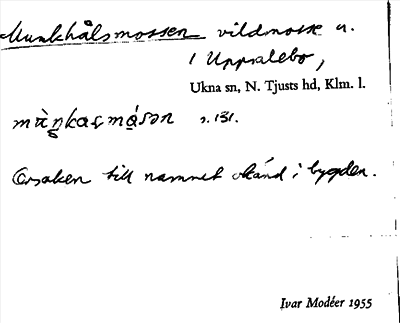 Munkhålsmossen vildmosse n.
i Uppsalebo,
Ukna sn, N. Tjusts hd, Klm. l.
s. 131.
Orsaken till namnet okänd i bygden.
Ivar Modéer 1955